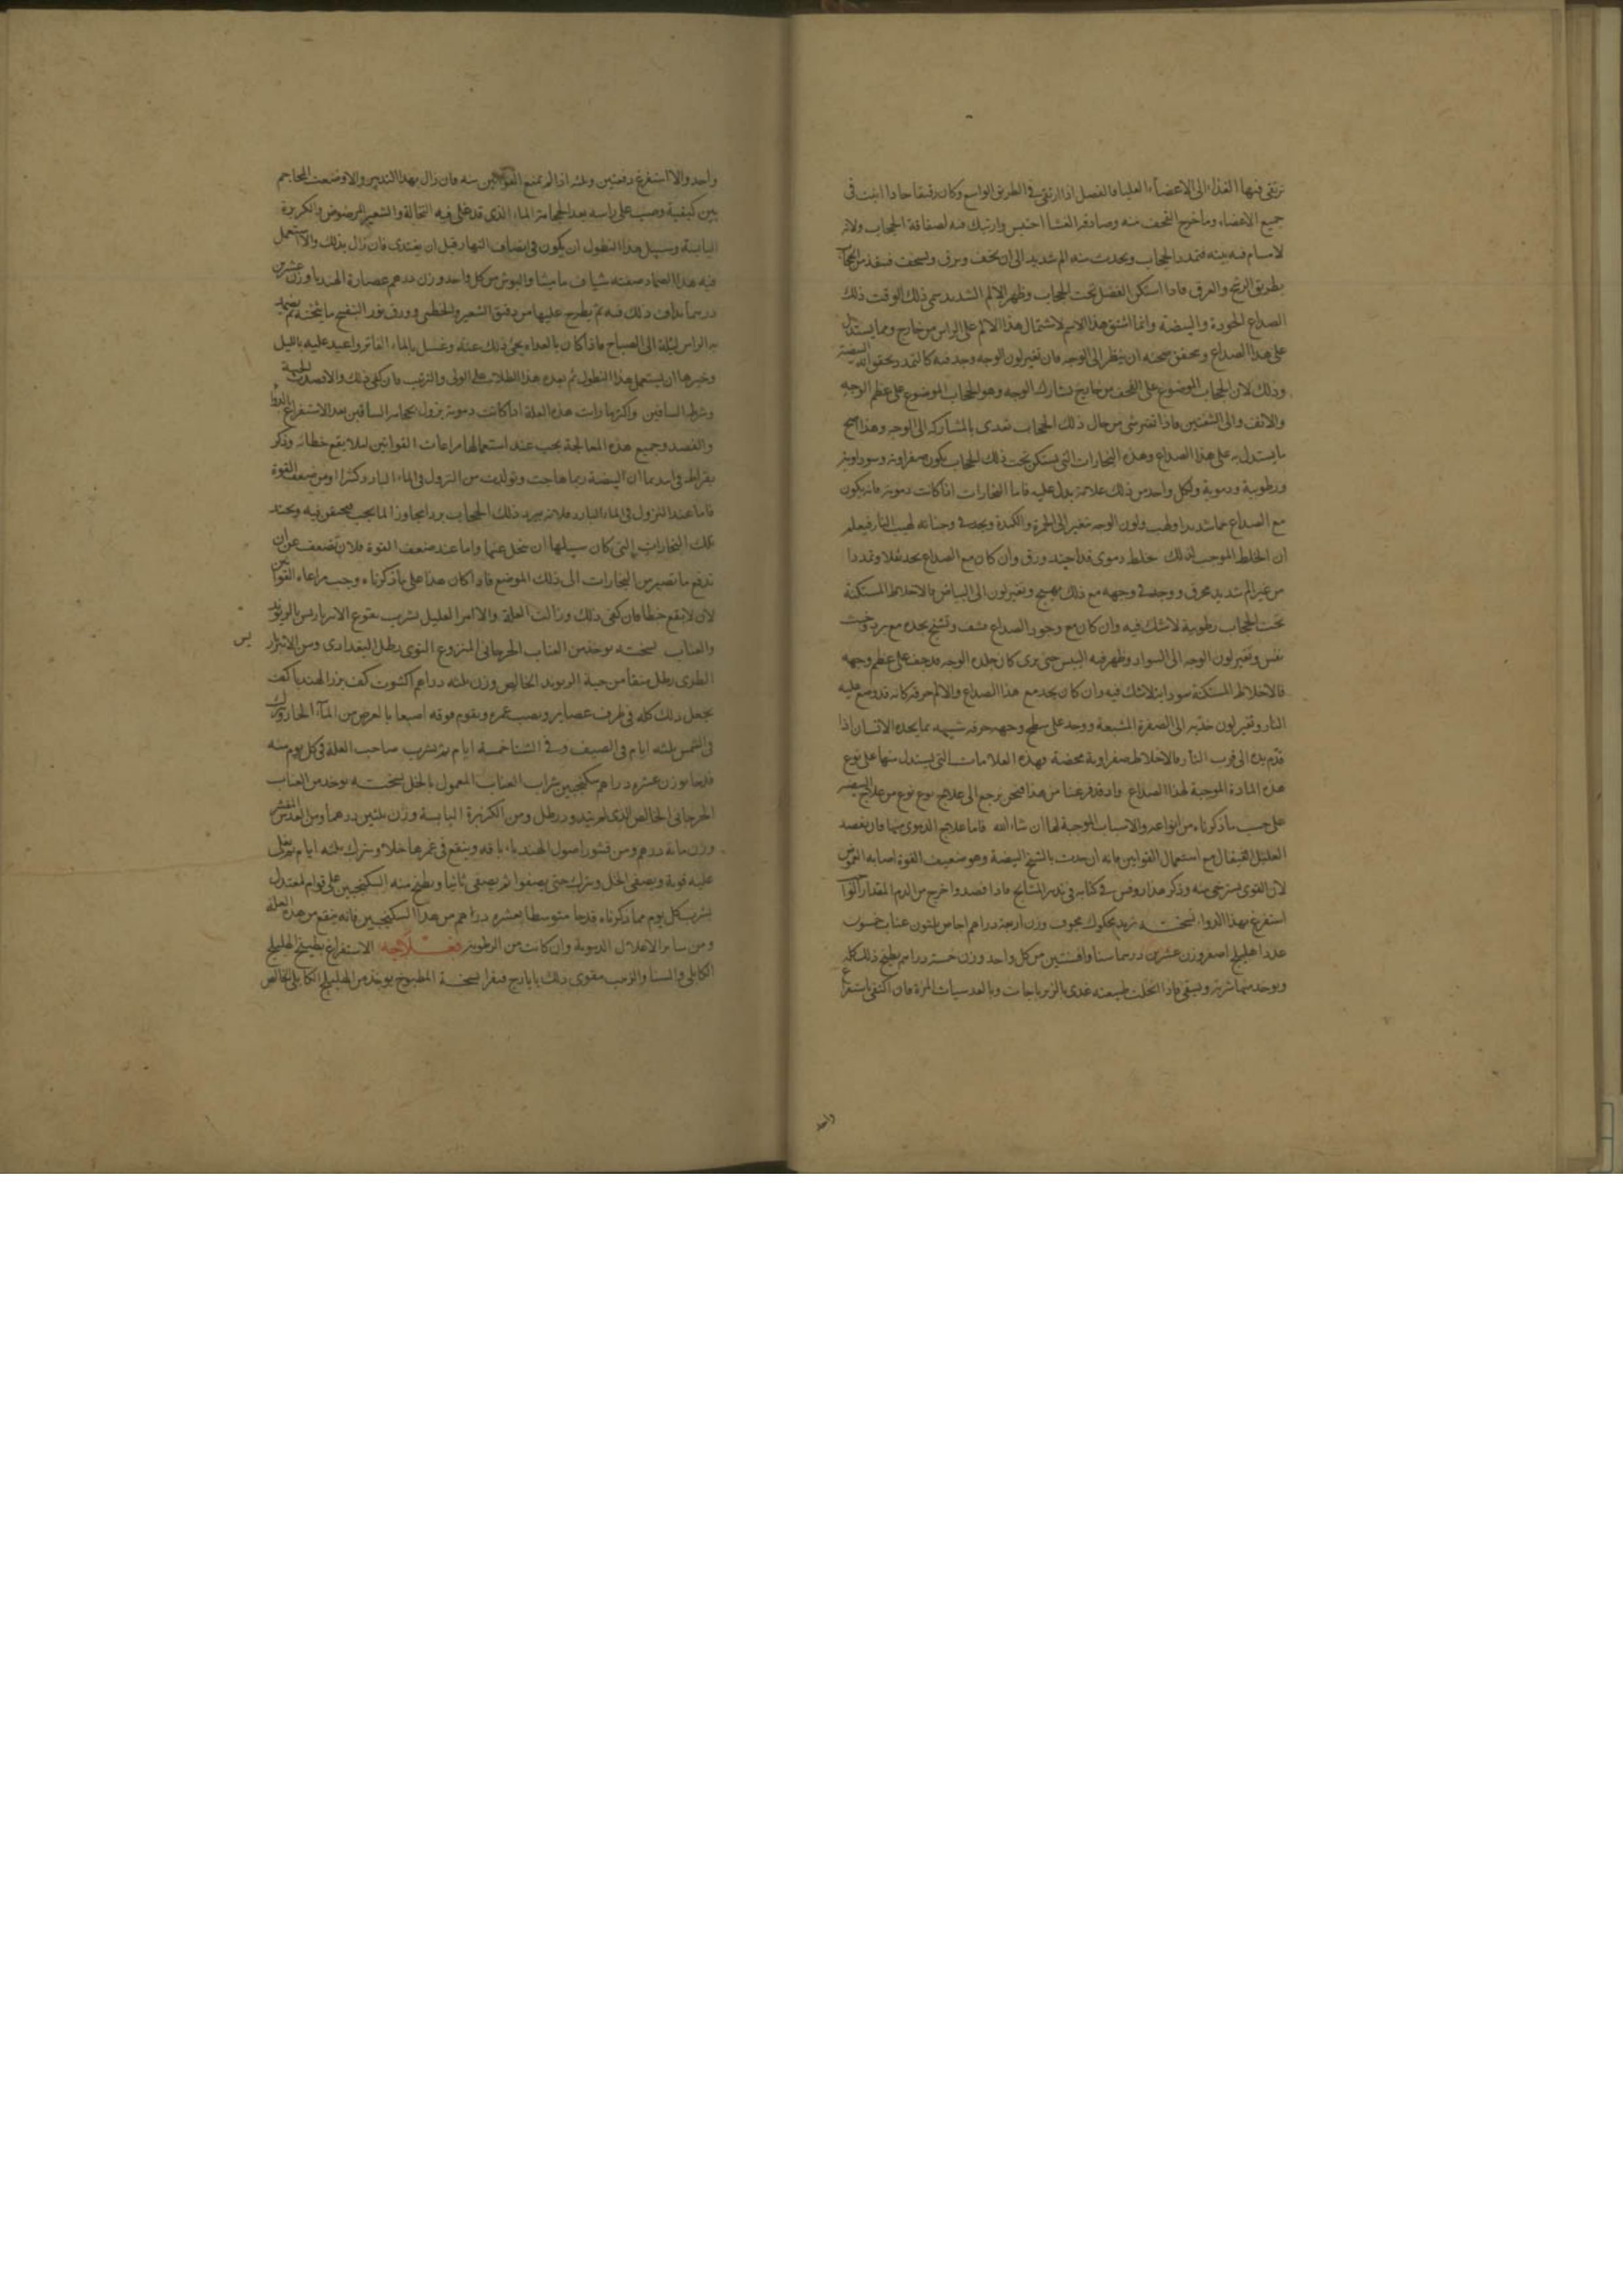 ترتقى فيها الغذاء الى الاعضاء العليا فالفضل اذا ارتقى فى الطريق الواسع وكان رقيقا حادا انبث فى
جميع الاعضاء وما خرج القحف منه وصادفه الغشا احتبس وارتبك فيه لصفاقة الحجاب ولانه
لا مسام فيه بينه فتمدد الحجاب ويحدث منه الم شديد الى ان يخف ويرق ويسخف فينفذ من الحجاب
بطريق الرشح والعرق فاذا استكن الفضل تحت الحجاب وظهر الالم الشديد سمى ذلك الوقت ذلك
الصداع الخودة والبيضة وانما اشتق هذا الاسم لاشتمال هذا الالم على الراس من خارج ومما يستدل
على هذا الصداع ويحقق صحته ان ينظر الى الوجه فان تغير لون الوجه وجد فيه كالتمدد يحقق انه البيضة
وذلك لان الحجاب الموضوع على القحف من خارج يشارك الوجه وهو الحجاب الموضوع على عظم الوجه
والانف والى الشفتين فاذا تغير شى من حال ذلك الحجاب تعدى بالمشاركه الى الوجه وهذا اصح
ما يستدل به على هذا الصداع وهذه البخارات التى يستكن تحت ذلك الحجاب يكون صفراوية وسوداوية
ورطوبية ودموية ولكل واحد من ذلك علامة يدل عليه فاما البخارات اذا كانت دموية فانه يكون
مع الصداع حما شديدا ولهب ولون الوجه متغير الى الحمرة والكمدة ويجد فى وجناته لهيب النار فيعلم
ان الخلط الموجب لذلك خلط دموى قد احتد ورق وان كان مع الصداع يجد ثقلا وتمددا
من غير الم شديد محرق ووجد فى وجهه مع ذلك تهيج وتغير لون الى البياض فالاخلاط المستكنة
تحت الحجاب رطوبية لا شك فيه وان كان مع وجود الصداع وتشنج يجده مع برد وخبث
نفس وتغير لون الوجه الى السواد وظهر فيه اليبس حتى يرى كان جلده الوجه قد جف على عظم وجهه
فالاخلاط المستكنة سوداوية لا شك فيه وان كان يجد مع هذا الصداع والالم حرقة كانه قد وضع عليه
النار وتغير لون خديه الى الصفرة المشبعة ووجد على سطح وجهه حرقه شبيهه بما يجده الانسان اذا
قدم يده الى قرب النار فالاخلاط صفراوية محضة فهذه العلامات التى يستدل منها على نوع
هذه المادة الموجبة لهذا الصداع واذ قد فرغنا من هذا فنحن نرجع الى علاج نوع نوع من علاج البيضة
على حسب ما ذكرناه من انواعه والاسباب الموجبة لها ان شاء الله فاما علاج الدموى منها فان يفصد
العليل القيفال مع استعمال القوانين فانه ان حدث بالشيخ البيضة وهو ضعيف القوة اصابه العرض
لان القوى يسترخى منه وذكر هذا روفس فى كتابه فى تدبير المشايخ فاذا فصد واخرج من الدم المقدار
استفرغ بهذا الدواء نسخته تربد محكوك مجوف وزن اربعة دراهم اجاص ثلثون عناب خمسون
عددا هليلج اصفر وزن عشرين درهما سنا وافسنتين من كل واحد وزن خمسة دراهم يطبخ ذلك كله
ويوخذ منها شربة ويسقى فاذا انحلت طبيعته غذى بالزيرباجات وبالعدسيات المزة فان اكتفى باستفراغ
واحد والا استفرغ دفعتين وثلثه اذا لم تمنع القوانين منه فان زال بهذا التدبير والا وضعت المحاجم
بين كتفيه وصب على راسه بعد الحجامة الماء الذى قد غلى فيه النخالة والشعير المرضوض والكزبرة
اليابسة وسبيل هذا النطول ان يكون فى انصاف النهار قبل ان يغتدى فان زال بذلك والا استعمل
فيه هذا الضماد صفته شياف ماميثا والبوش من كل واحد وزن درهم عصارة الهندبا وزن عشرين
درهما يداف ذلك فيه ثم يطرح عليها من دقيق الشعير والخطمى وورق نور البنفسج ما يثخنه ثم يضمد
به الراس ليلة الى الصباح فاذا كان بالغداة يحى ذلك عنه وغسل بالماء الفاتر واعيد عليه بالليل
وخيرها ان يستعمل هذا النطول ثم بعده هذا الطلاء على الولى والترتيب فان كفى ذلك والا فصدت الجبهة
وشرط الساقين واكثر ما رات هذه العلة اذا كانت دموية يزول بحجامة الساقين بعد الاستفراغ بالدواء
والفصد وجميع هذه المعالجة يجب عند استعمالها مراعات القوانين ليلا يقع خطا فانه وذكر
بقراط فى ابيديما ان البيضة ربما هاجت وتولدت من النزول فى الماء البارد كثيرا ومن ضعف القوة
فاما عند النزول فى الماء البارد فلانه يبرد ذلك الحجاب بردا مجاوزا لما يجب فيحتقن فيه ويحتد
تلك البخارات التى كان سبيلها ان تتحلل عنها واما عند ضعف القوة فلان تضعف عن ان
تدفع ما تصير من البخارات الى ذلك الموضع فاذا كان هذا على ما ذكرناه وجب مراعاة القوانين
لان لا يقع خطا فان كفى ذلك وزالت العلة والا امر العليل بشرب نقوع الانبرباريس بالريوند
والعناب نسخته يوخذ من العناب الجرجانى المنزوع النوى رطل البغدادى ومن الانبربار
يس
الطرى رطل منقا من حبه الريوند الخالص وزن ثلثه دراهم اكشوث كف بزر الهندبا كف
يجعل ذلك كله فى ظرف غضاير ويصب غمره ويقوم فوقه اصبعا بالعرض من الماء الحار ويترك
فى الشمس ثلثه ايام فى الصيف وفى الشتا خمسة ايام ثم يشرب صاحب العلة فى كل يوم منه
قدحا بوزن عشرة دراهم سكنجبين شراب العناب المعمول بالخل نسخته يوخذ من العناب
الجرجانى الخالص الذى لم يتدود رطل ومن الكزبرة اليابسة وزن ثلثين درهما ومن العدس المقشر
وزن مائة درهم ومن قشور اصول الهندباء باقه وينقع فى غمرها خلا ويترك ثلثه ايام ثم يغلى
عليه قوية ويصفى الخل ويترك حتى يصفوا ثم يصفى ثانيا ويطبخ منه السكنجبين على قوام معتدل
يشرب كل يوم مما ذكرناه قدحا متوسطا بعشرة دراهم من هذا السكنجبين فانه ينفع من هذه العلة
ومن سائر الاعلال الدموية وان كانت من الرطوبة فعلاجه الاستفراغ بطبيخ الهليلج
الكابلى والسنا والزبيب مقوى ذلك بايارج فيقرا نسخة المطبوخ يوخذ من الهليلج الكابلى الخالص